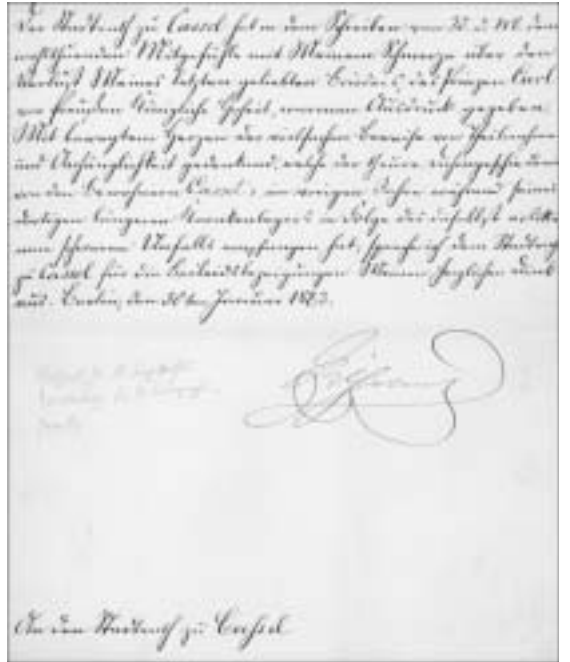 Der Stadtrath zu Cassel hat in dem Schreiben vom 22. d. Mts. dem
wohlthuenden Mitgefühle mit Meinem Schmerze über den
Verlust Meines letzten geliebten Bruders, des Prinzen Carl
von Preußen Königliche Hoheit, warmen Ausdruck gegeben.
Mit bewegtem Herzen der vielfachen Beweise von Theilnahme
und Anhänglichkeit gedenkend, welche der theure Dahingeschiedene
von den Bewohnern Cassels im vorigen Jahre während seines
dortigen längeren Krankenlagers in Folge des daselbst erlitte-
nen schweren Unfalls empfangen hat, spreche ich dem Stadtrath
zu Cassel für die Beileidsbezeugungen Meinen herzlichen Dank
aus. Berlin, den 30ten Januar 1883.
Wilhelm
An den Stadtrath zu Cassel